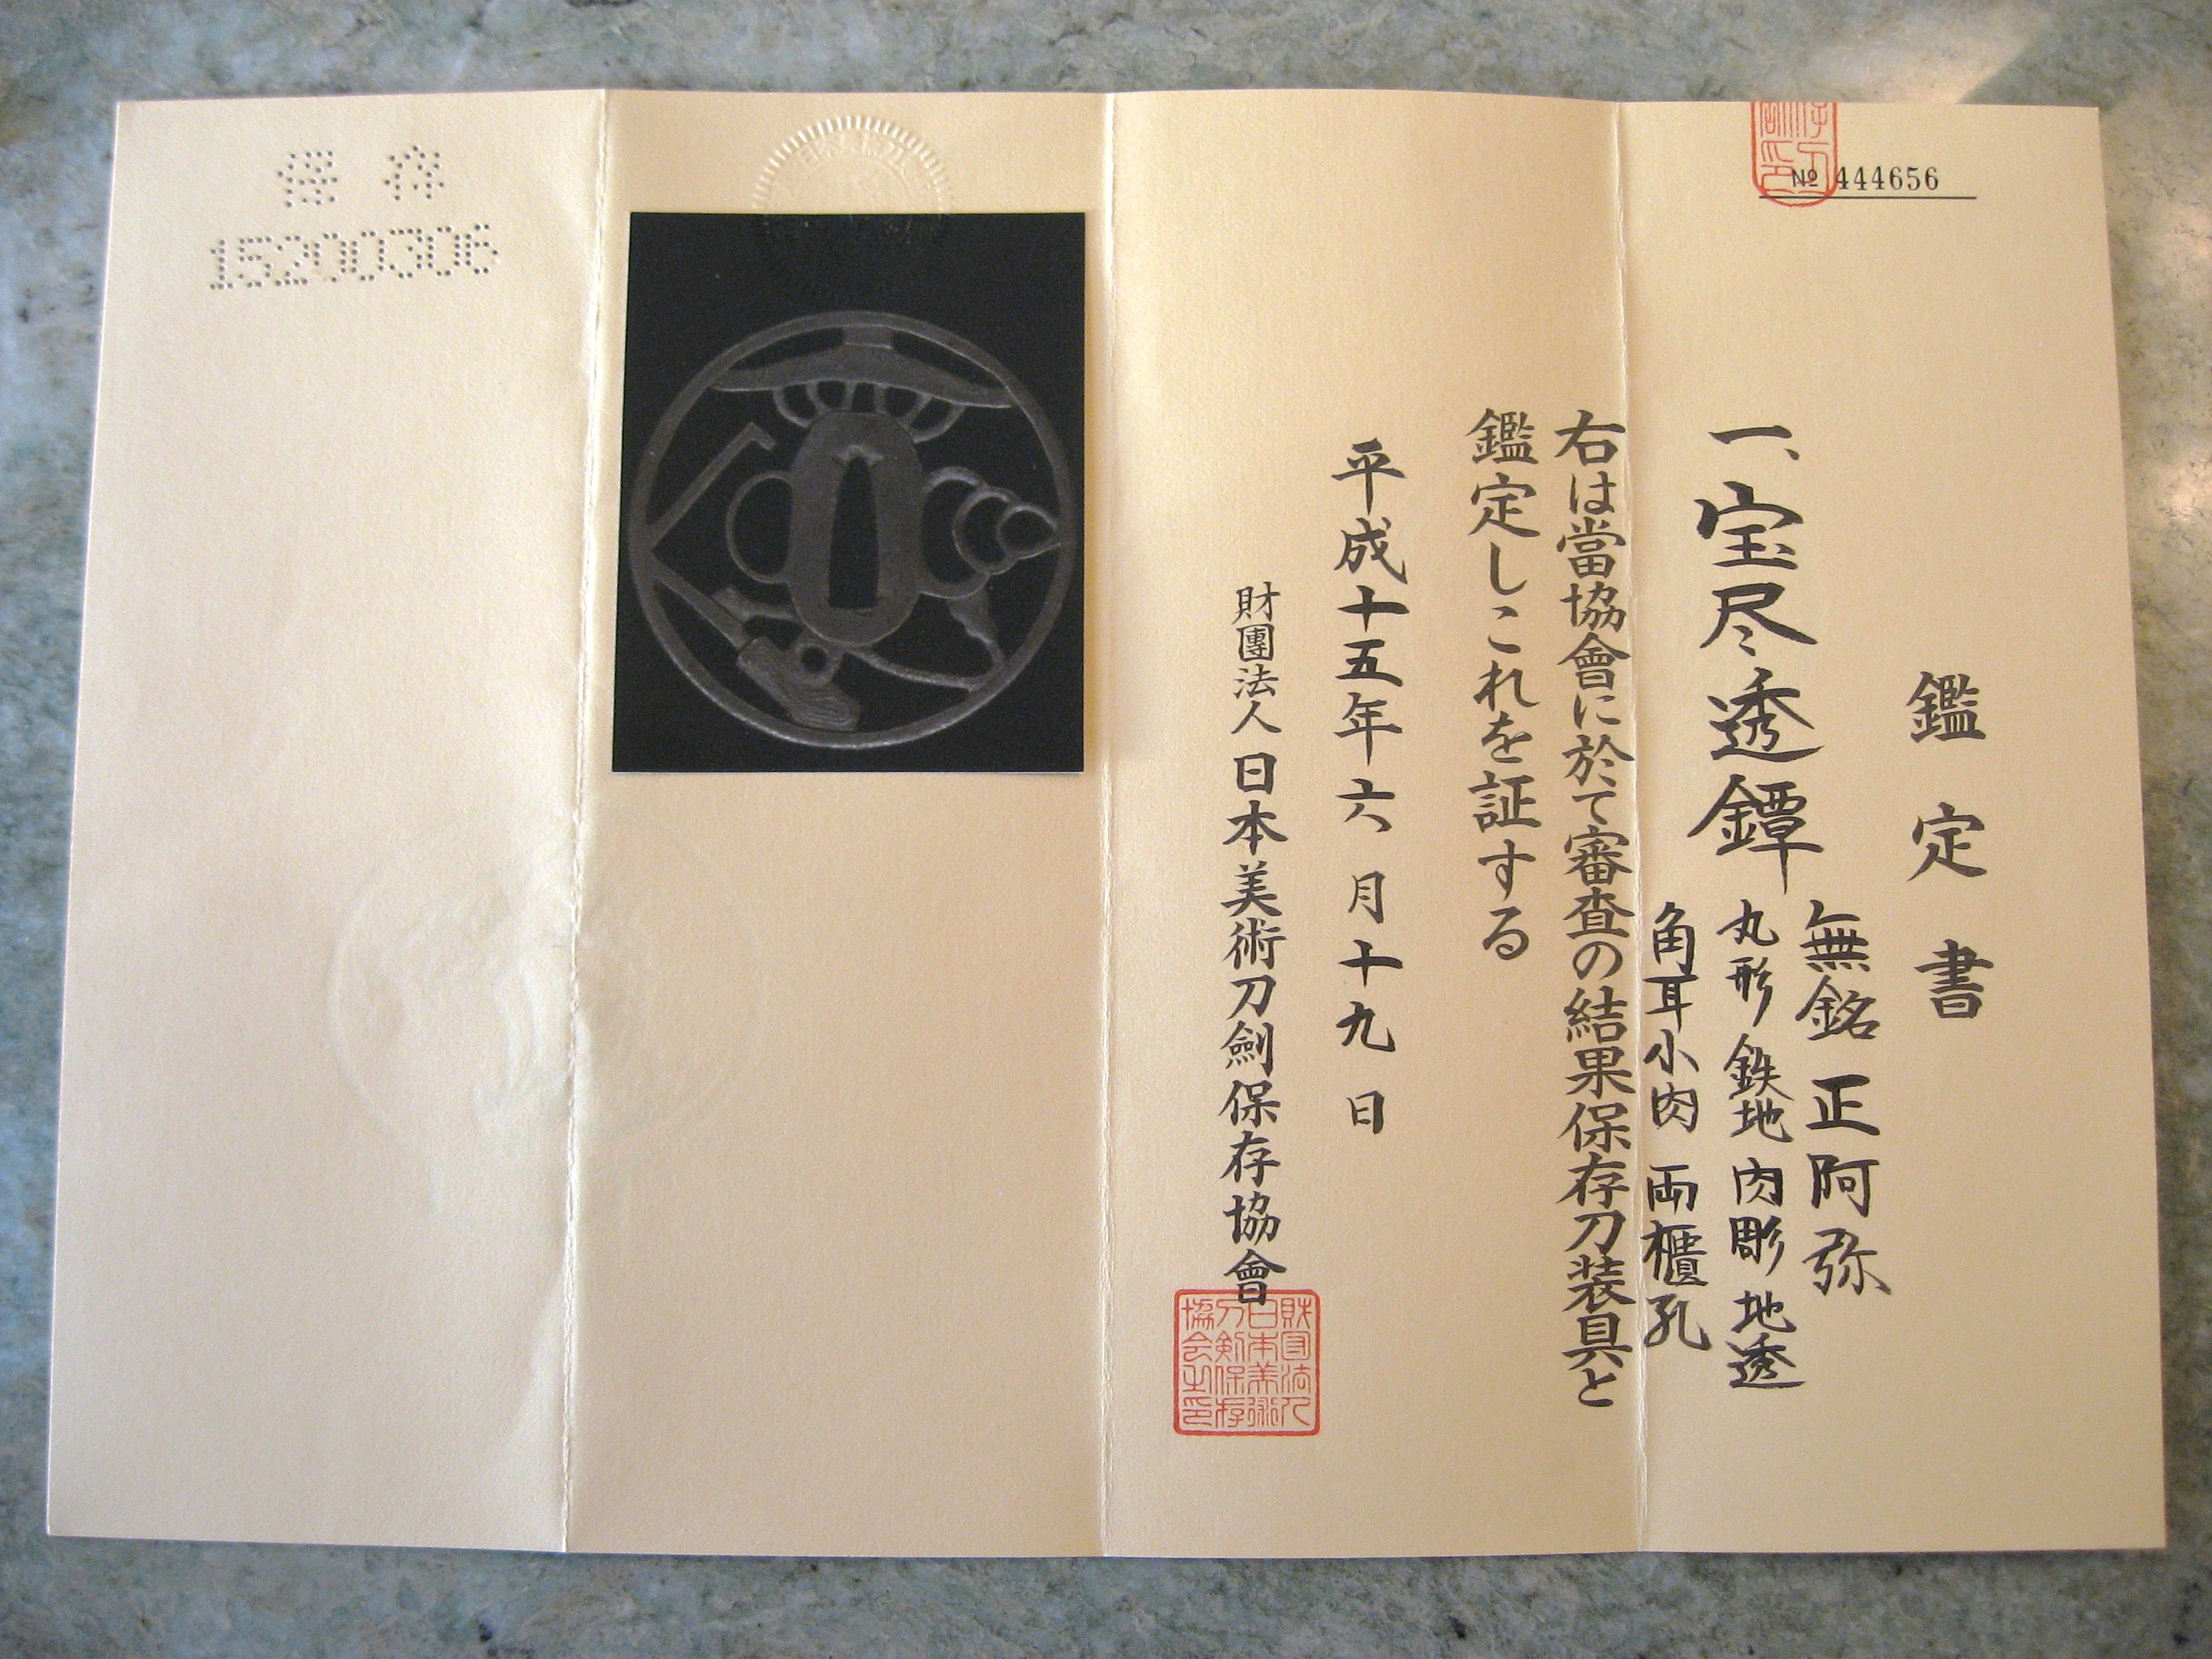 № 444656
鑑定書
一、宝尽透鐔
無銘 正阿弥
丸形 鉄地 肉彫 地透
角耳小肉 両櫃孔
右は當協會に於て審査の結果保存刀装具と
鑑定しこれを証する
平成十五年六月十九日
財團法人日本美術刀劍保存協會
財団法人
日本美術
刀剣保存
協会之印
保存
15200306